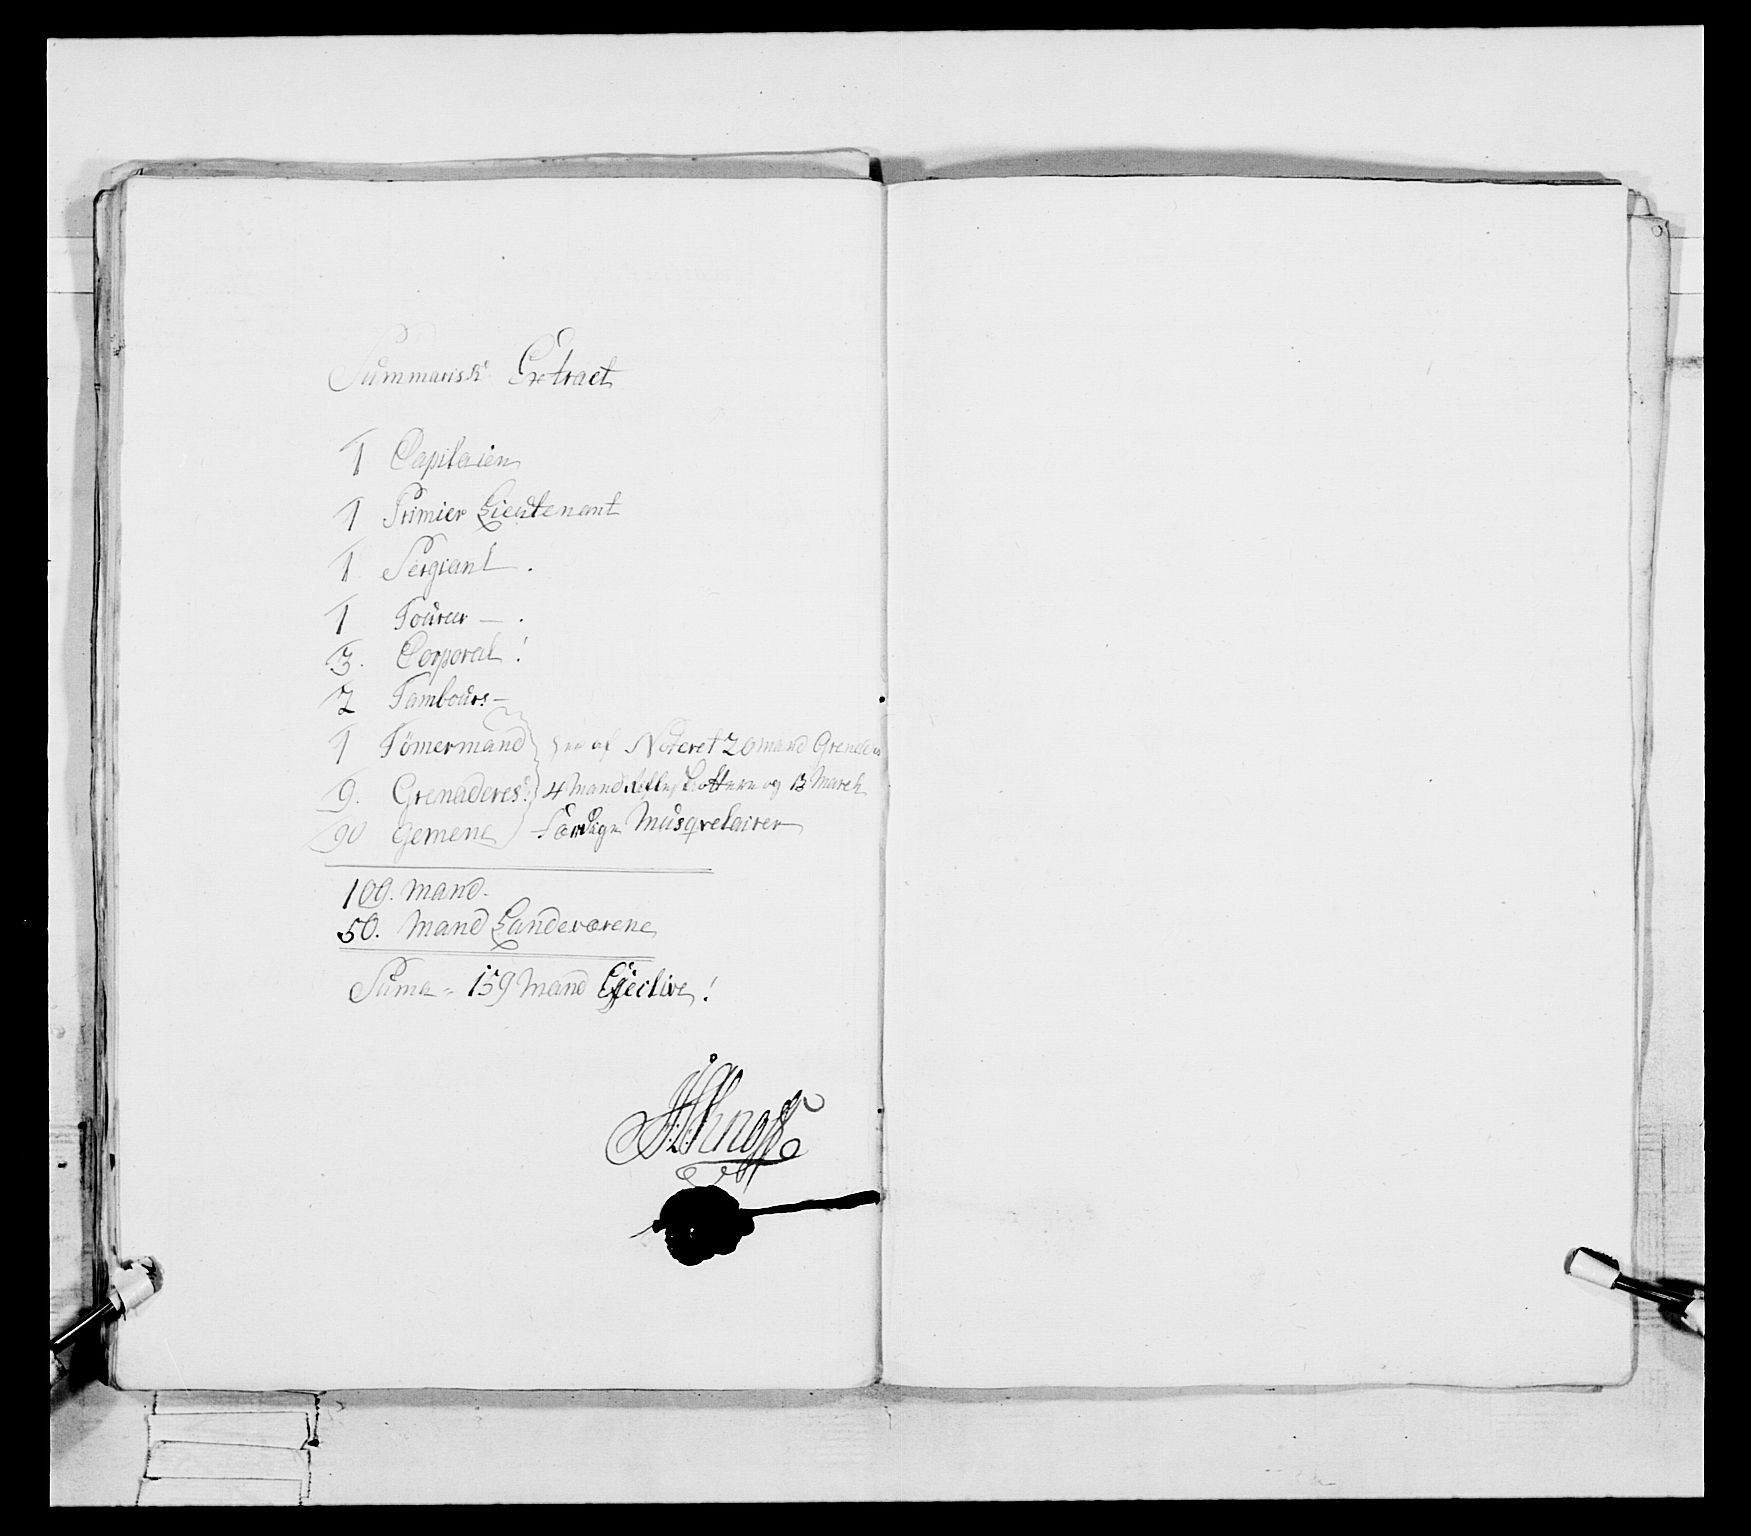 Summarisk Extract
1 Capitaien
1 Primier Lieutenant
1 Sergiant .
1 Foureer — .
3. Corporal !
2 Tambours —
1 Tömermand
9. Grenaderes:
90 Gemene
af Noteret 26 mand Grenader
4 Mand og 13 March
Færdige Musqvetairer
109. Mand.
50. Mand Landeværene
Suma = 159 Mand Effective !